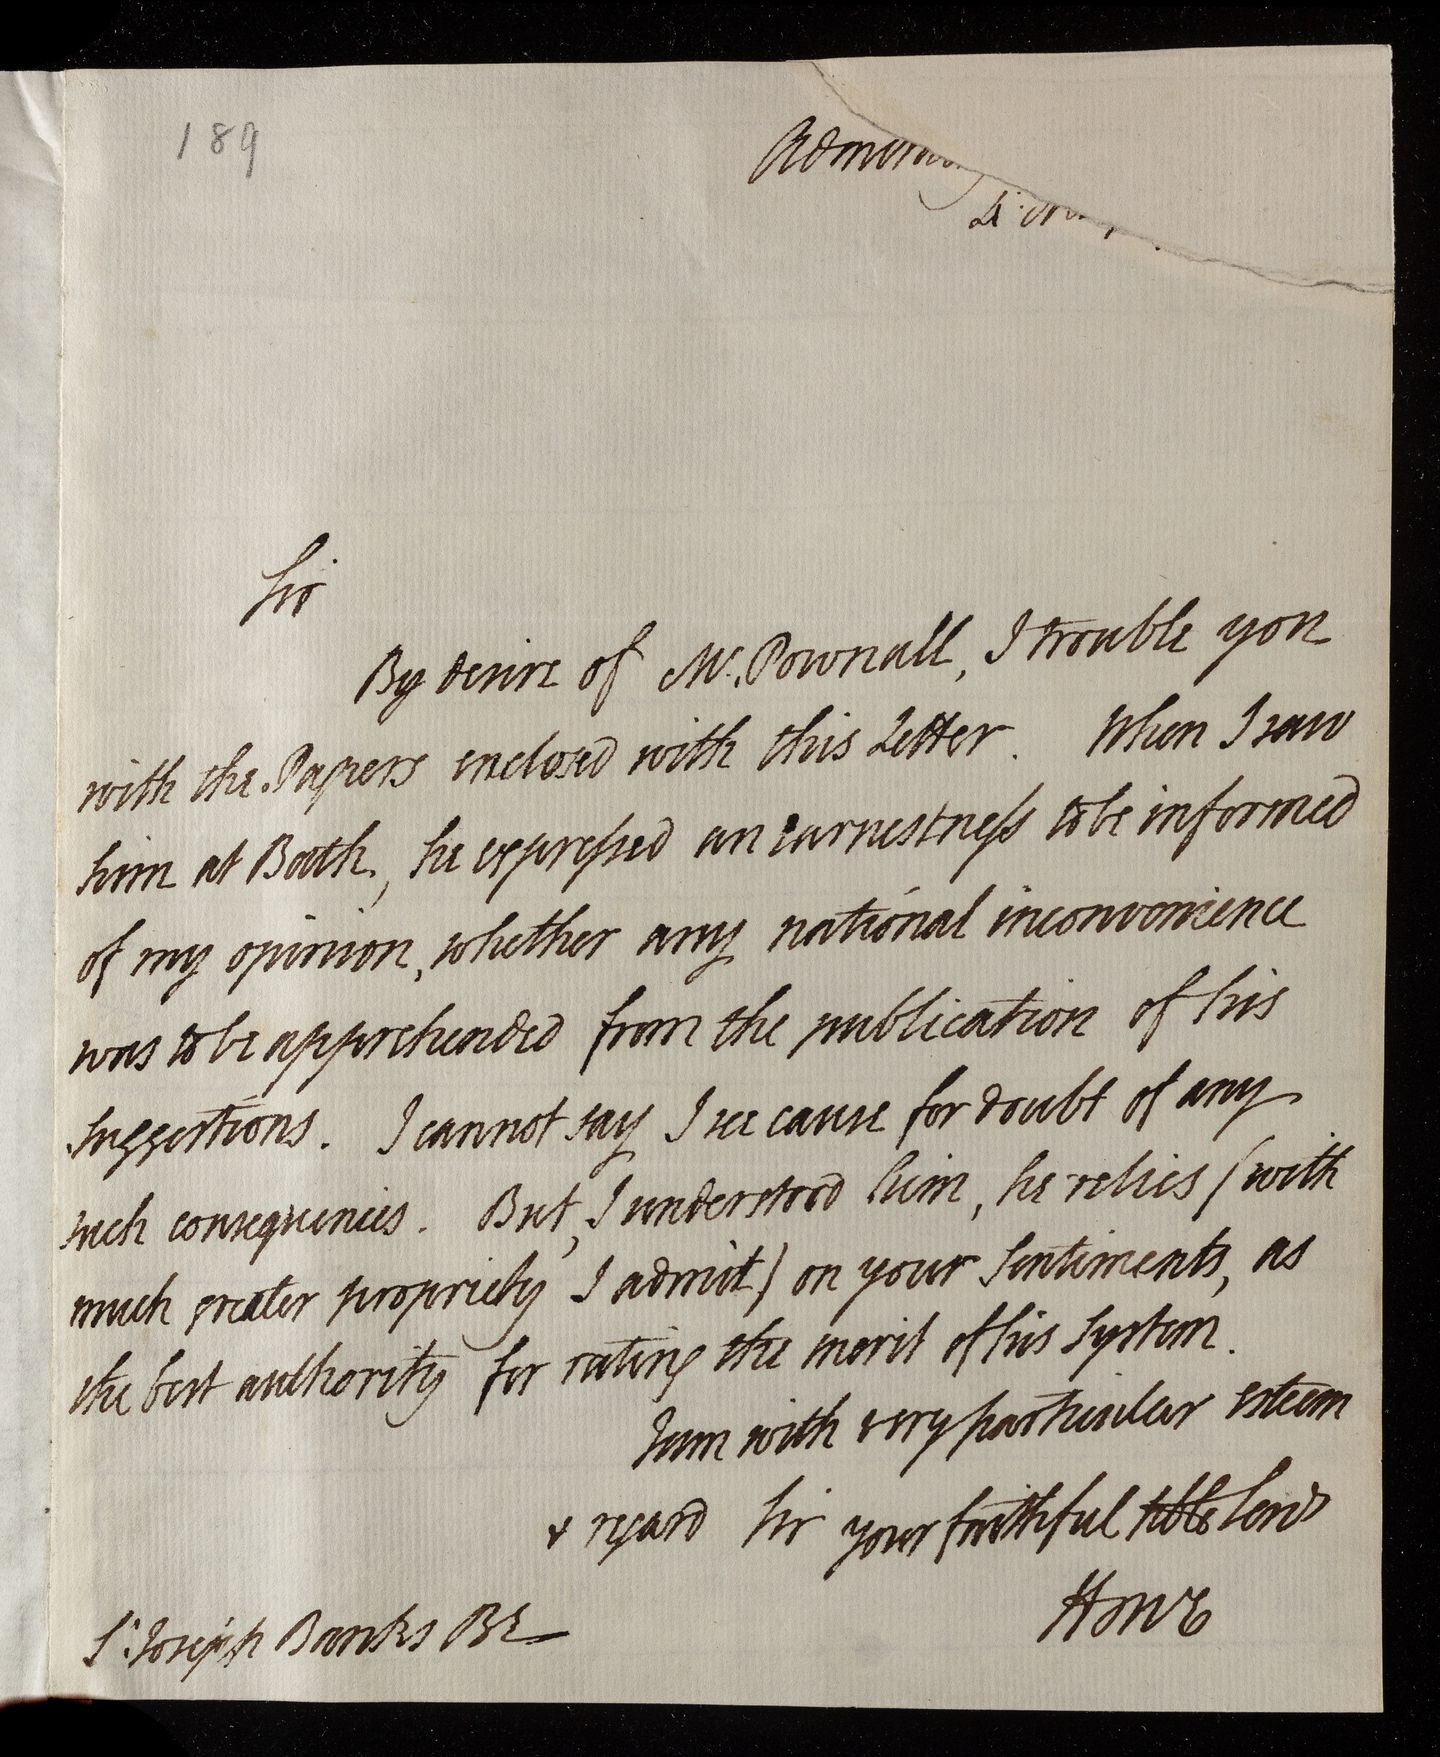 189
Sir
By desire of Mr. Pownall, I trouble you
with the Papers enclosed with this Letter. When I saw
him at Bath, he expressed an earnestness to be informed
of my opinion, whether any national inconvenience
was to be apprehended from the publication of his
suggestions. I cannot say I see cause for doubt of any
such consequences. But, I understood him, he relies (with
much greater propriety I admit) on your Sentiments, as
the best authority for rating the merit of his System.
I am with very particular esteem
& regard Sir your faithful hble Servt
Howe
Sr. Joseph Banks Bt